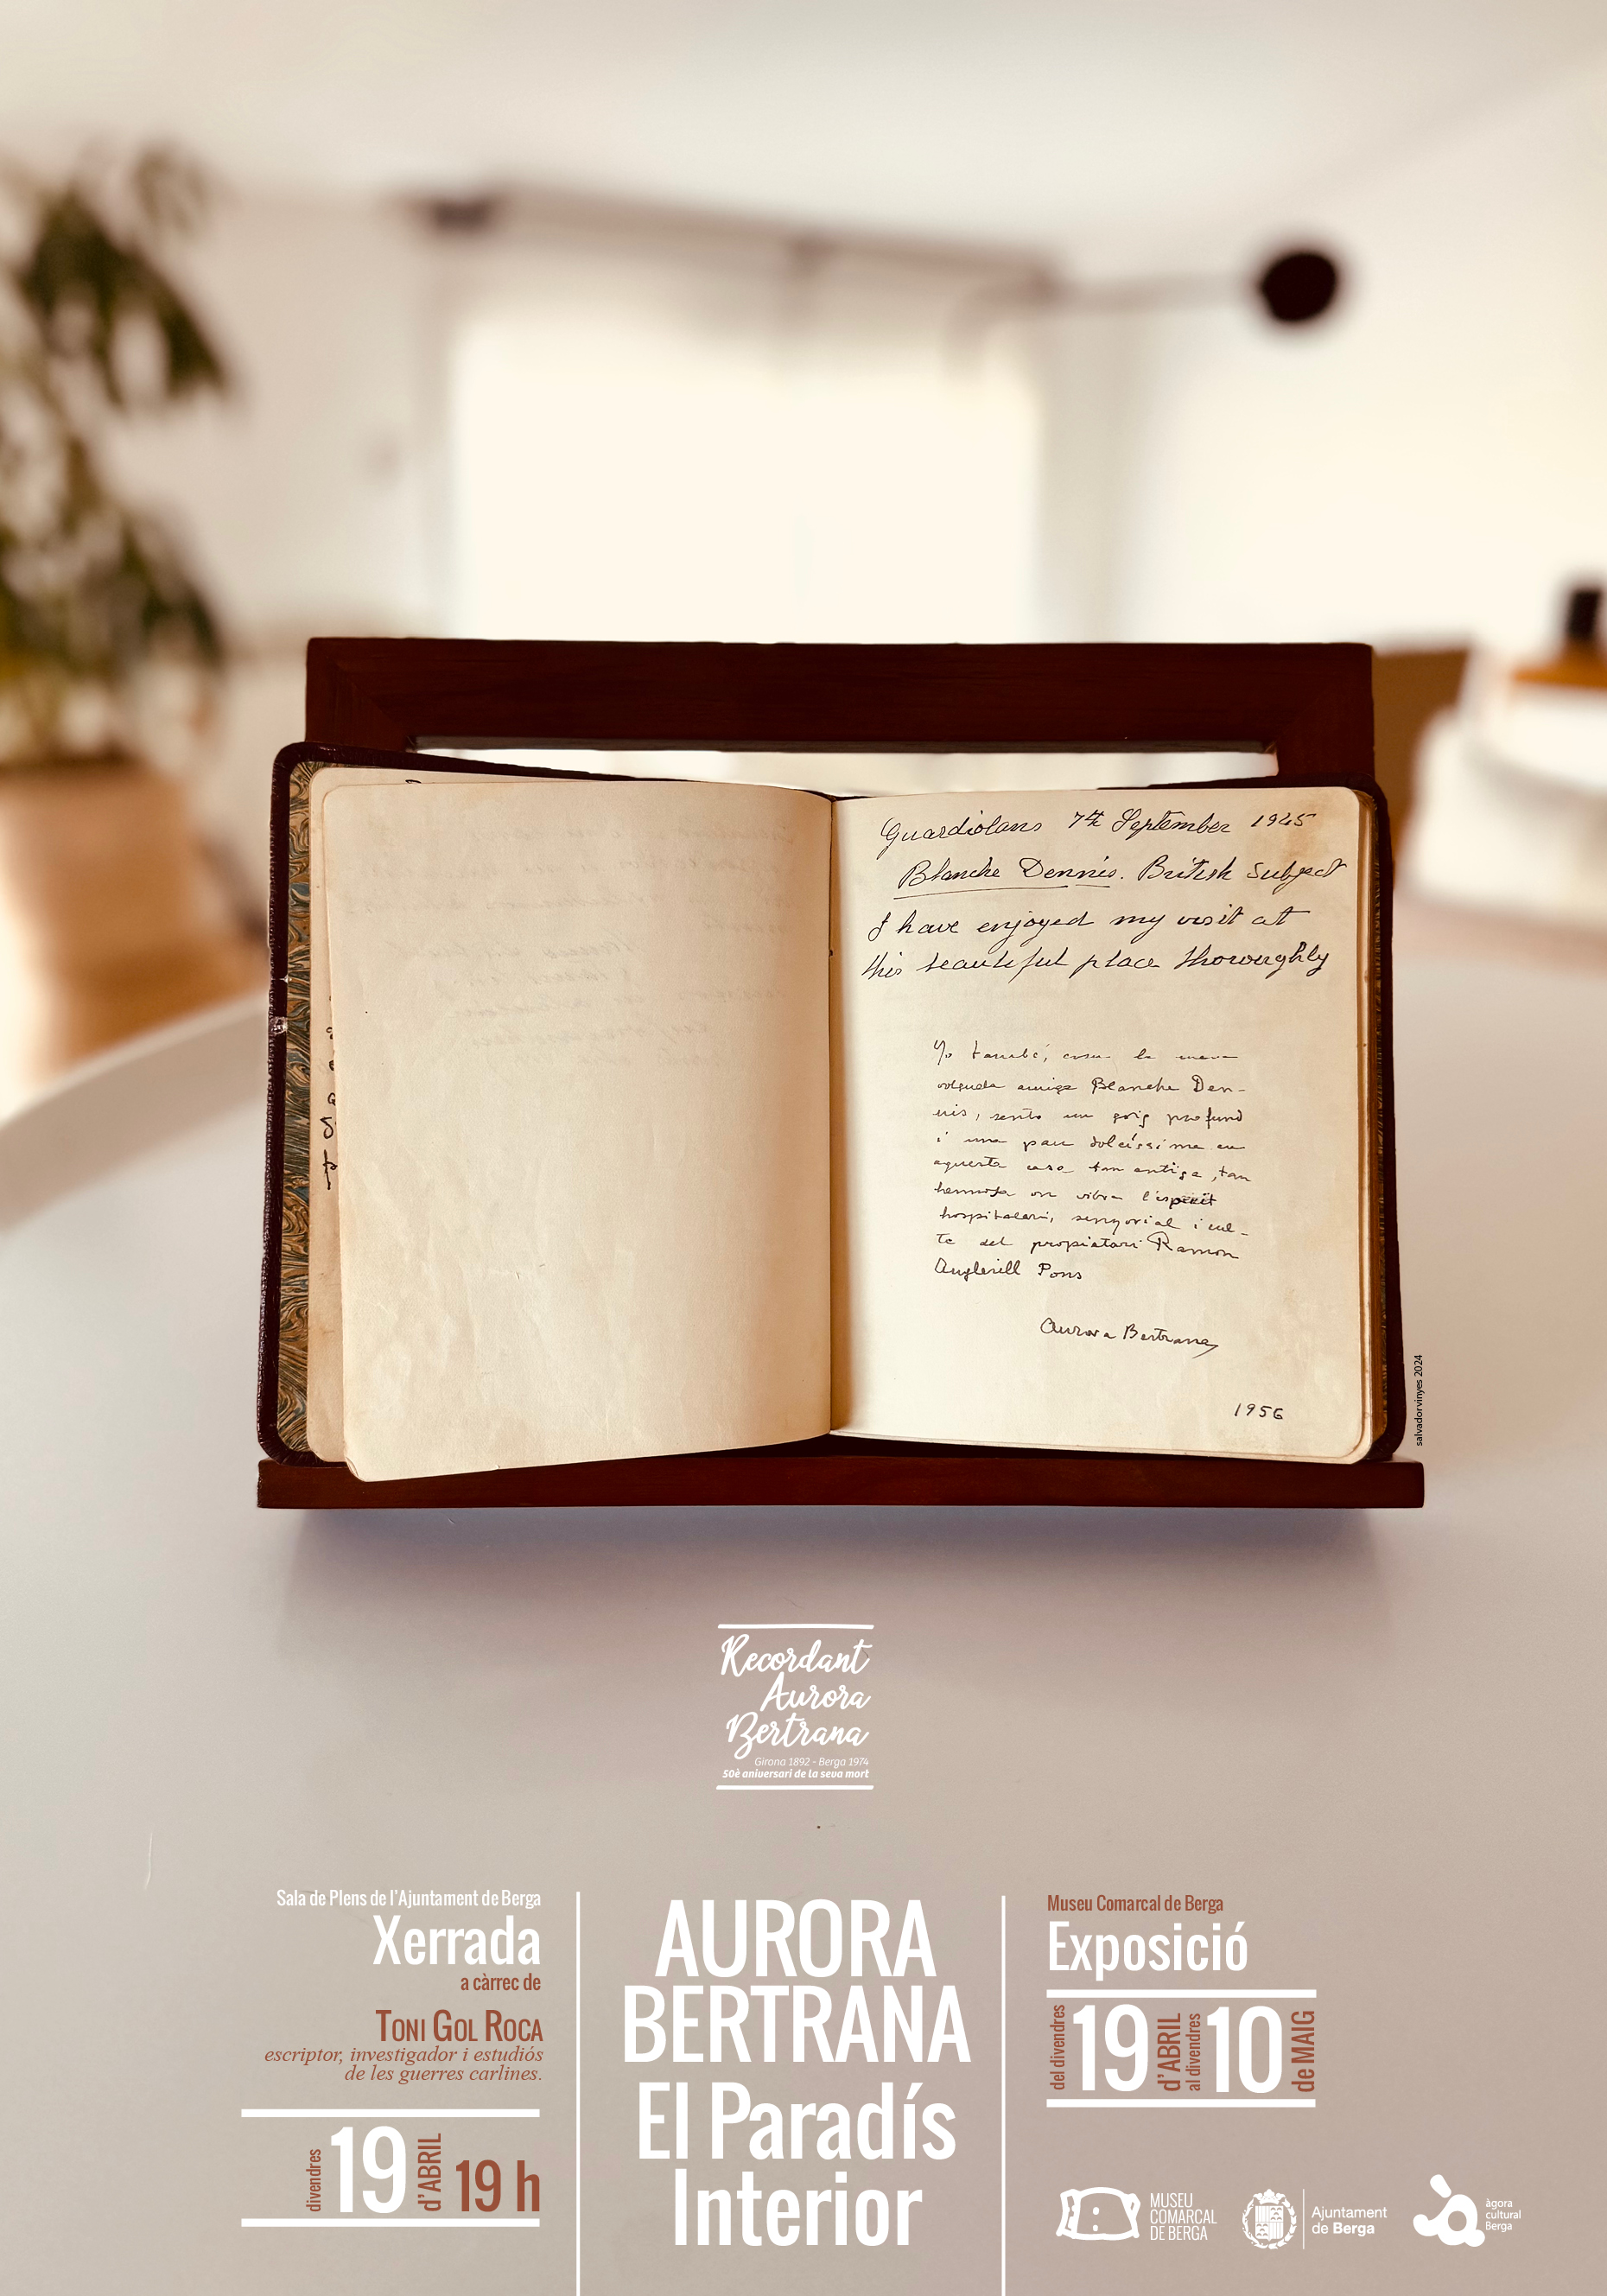 Guardiolans 7th September 1945
Blanche Dennis. British subject
I have enjoyed my visit at
this beautiful place thoroughly
Jo també, com la meva
volguda amiga Blanche Den-
nis, sento un goig profund
i una pau dolcíssima en
aquesta casa tan antiga, tan
hermosa on vibra l'esperit
hospitalari, senyorial i cul-
te del propietari Ramon
Anglerill Pons
Aurora Bertrana
1956
salvadorvinyes 2024
Recordant
Aurora
Bertrana
Girona 1892 - Berga 1974
50è aniversari de la seva mort
Sala de Plens de l'Ajuntament de Berga
Xerrada
a càrrec de
TONI GOL ROCA
escriptor, investigador i estudiós
de les guerres carlines.
divendres 19 d'ABRIL 19 h
AURORA
BERTRANA
El Paradís
Interior
Museu Comarcal de Berga
Exposició
del divendres 19 d'ABRIL al divendres 10 de MAIG
MUSEU
COMARCAL
DE BERGA
Ajuntament
de Berga
àgora
cultural
Berga